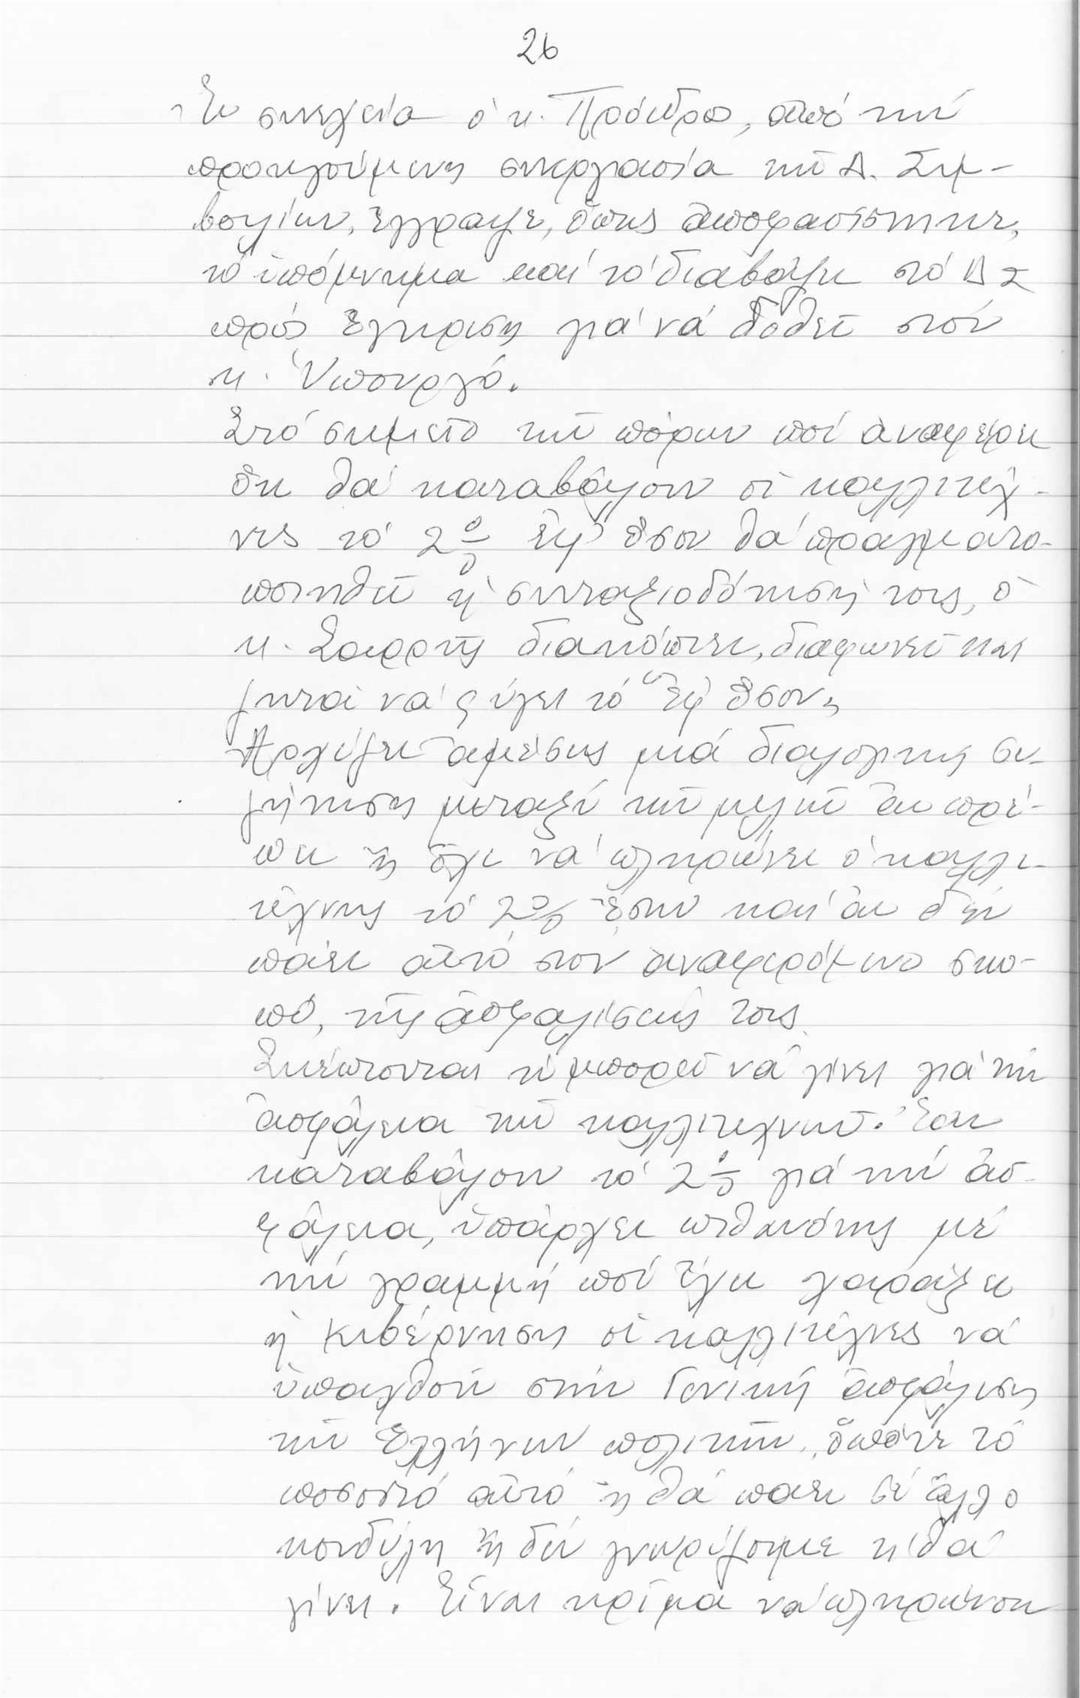 26
Ἐν συνεχεία ὁ κ. Πρόεδρος, ἀπό τήν
προηγούμενη συνεργασία τῶν Δ. Συμ-
βούλων, ἔγραψε, ὅπως ἀποφασίστηκε,
τό ὑπόμνημα καί τό διαβάζει στό ΔΣ
πρός ἔγκριση γιά νά δοθεῖ στόν
κ. Ὑπουργό.
Στό σημεῖο τῶν πόρων πού ἀναφέρει
ὅτι θά καταβάλουν οἱ καλλιτέχ-
νες τό 2% ἐφ' ὅσον θά πραγματο-
ποιηθεῖ ἡ συνταξιοδότησή τους, ὁ
κ. διακόπτει, διαφωνεῖ και
ζητά νά φύγει τό "ἐφ' ὅσον"
Ἀρχίζει ἀμέσως μιά διαλογική συ-
ζήτηση μεταξύ τῶν μελῶν ἄν πρέ-
πει ἤ ὄχι νά πληρώνει ὁ καλλι-
τέχνης τό 2% ἔστω καί ἄν δέν
πάει αὐτό στόν ἀναφερόμενο σκο-
πό, τῆς ἀσφαλίσεώς τους.
Σκέπτονται τί μπορεῖ νά γίνει γιά τήν
ἀσφάλεια τῶν καλλιτεχνῶν. Ἐάν
καταβάλουν τό 2% γιά τήν ἀσ-
φάλεια, ὑπάρχει πιθανότης μέ
τήν γραμμή πού ἔχει χαράξει
ἡ Κυβέρνηση οἱ καλλιτέχνες νά
ὑπαχθοῦν στήν Γενική ἀσφάλιση
τῶν Ἑλλήνων πολιτῶν, ὁπότε τό
ποσοστό αὐτό ἤ θά πάει σέ ἄλλο
κονδύλι ἤ δέν γνωρίζουμε τί θά
γίνει. Εἶναι κρῖμα νά πληρώνουν